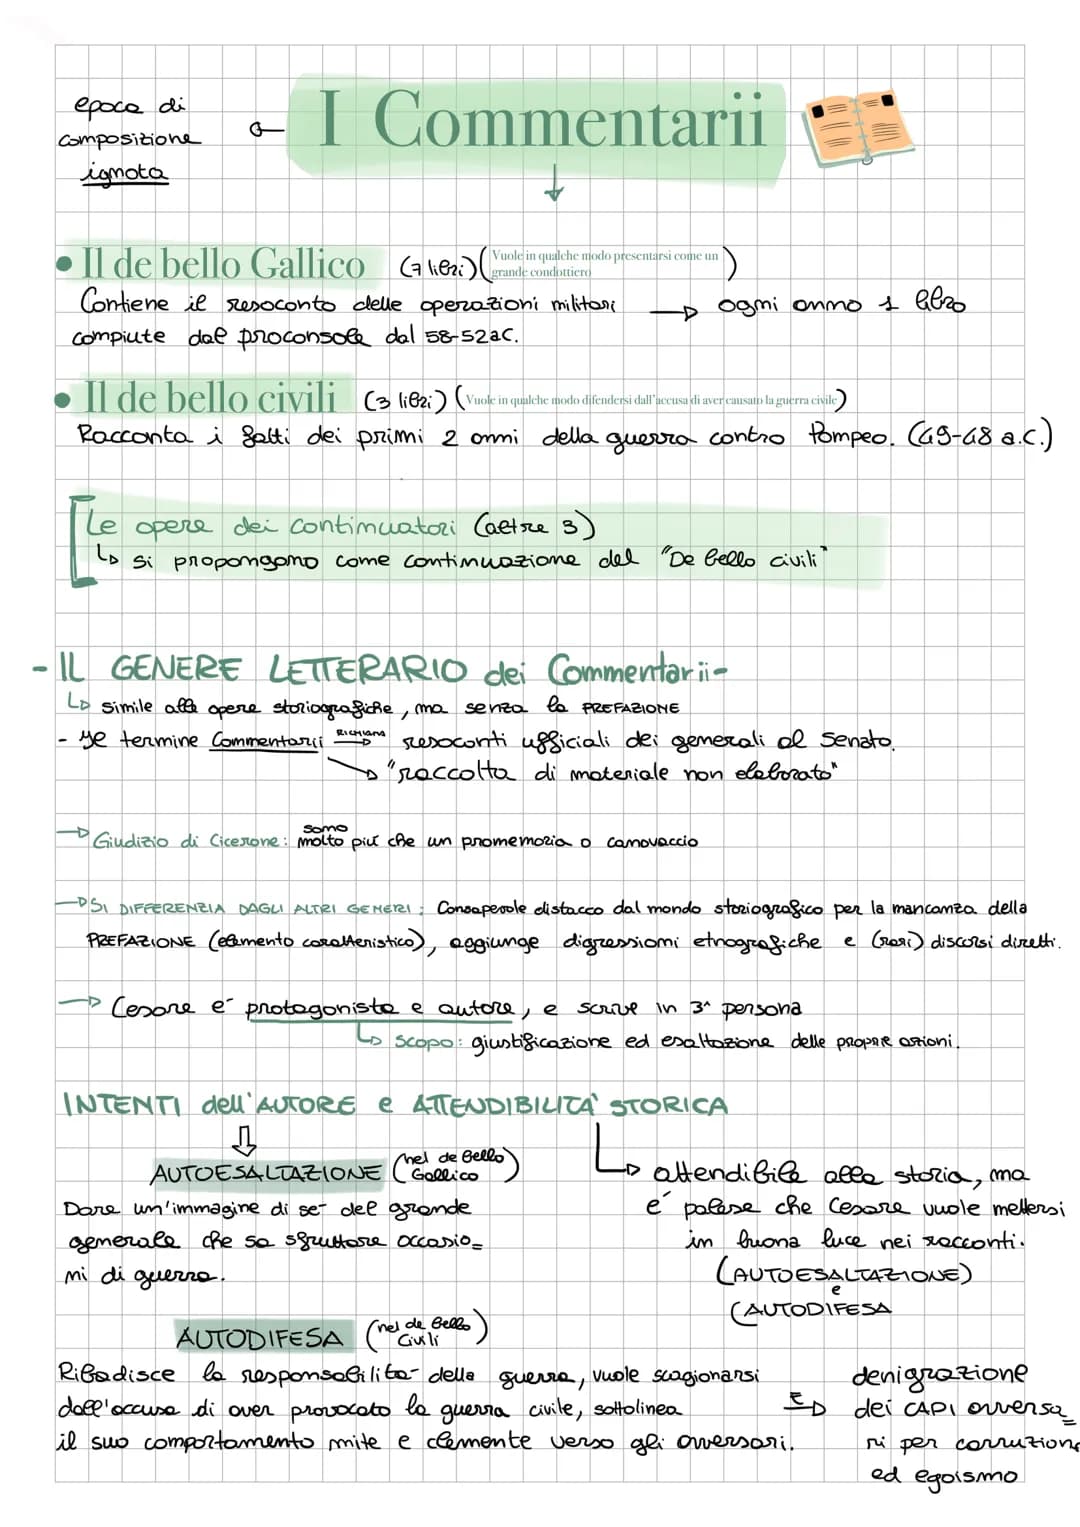 epoca di
composizione
ignota
I Commentarii
• Il de bello Gallico (7 libri) (Vuole in qualche modo presentarsi come un
grande condottiero)
Contiene il resoconto delle operazioni militari → ogni anno 1 libro
compiute dal proconsole dal 58-52 a.C.
• Il de bello civili (3 libri) (Vuole in qualche modo difendersi dall'accusa di aver causato la guerra civile)
Racconta i fatti dei primi 2 anni della guerra contro Pompeo. (49-48 a.C.)
Le opere dei continuatori (altre 3)
↳ si propongono come continuazione del "De bello civili"
- IL GENERE LETTERARIO dei Commentarii -
↳ simile alle opere storiografiche, ma senza la PREFAZIONE
- Il termine Commentarii RICHIAMA → resoconti ufficiali dei generali al Senato.
→ "raccolta di materiale non elaborato"
→ Giudizio di Cicerone: sono molto più che un promemoria o canovaccio
→ SI DIFFERENZIA DAGLI ALTRI GENERI: Consapevole distacco dal mondo storiografico per la mancanza della
PREFAZIONE (elemento caratteristico), aggiunge digressioni etnografiche e (rari) discorsi diretti.
→ Cesare e' protagonista e autore, e scrive in 3^ persona
↳ SCOPO: giustificazione ed esaltazione delle proprie azioni.
INTENTI dell'AUTORE e ATTENDIBILITA' STORICA
AUTOESALTAZIONE (nel de Bello
Gallico)
Dare un'immagine di se- del grande
generale che sa sfruttare occasio=
ni di guerra.
↳ attendibile alla storia, ma
e' palese che Cesare vuole mettersi
in buona luce nei racconti.
(AUTOESALTAZIONE)
e
(AUTODIFESA
AUTODIFESA (nel de Bello
Civili)
Ribadisce la responsabilita- della guerra, vuole scagionarsi
dall'accusa di aver provocato la guerra civile, sottolinea
il suo comportamento mite e clemente verso gli avversari.
E → denigrazione
dei CAPI avversa=
ri per corruzione
ed egoismo